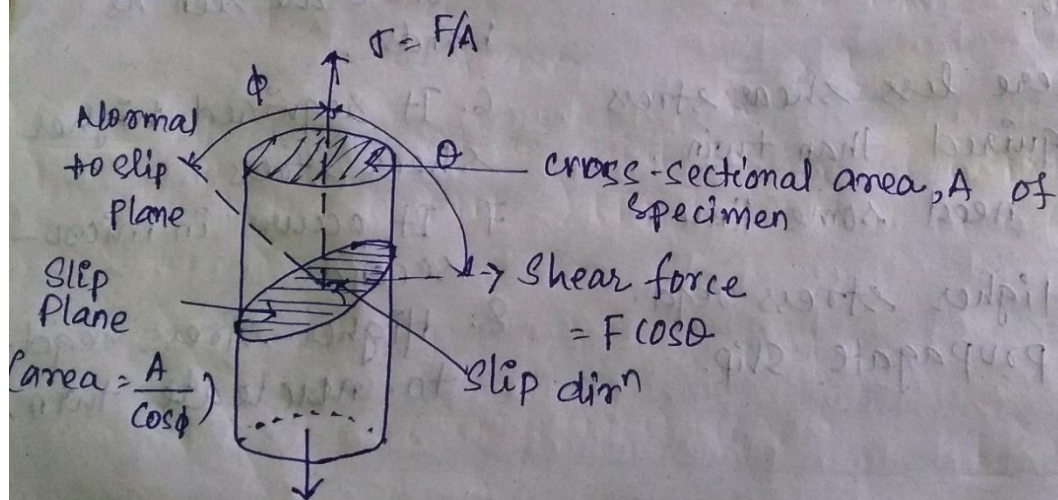 σ = F/A
ϕ
Normal
to slip
plane
θ
cross-sectional area, A of
specimen
Slip
Plane
(area = A/cosϕ)
Shear force
= F cosθ
Slip dirⁿ